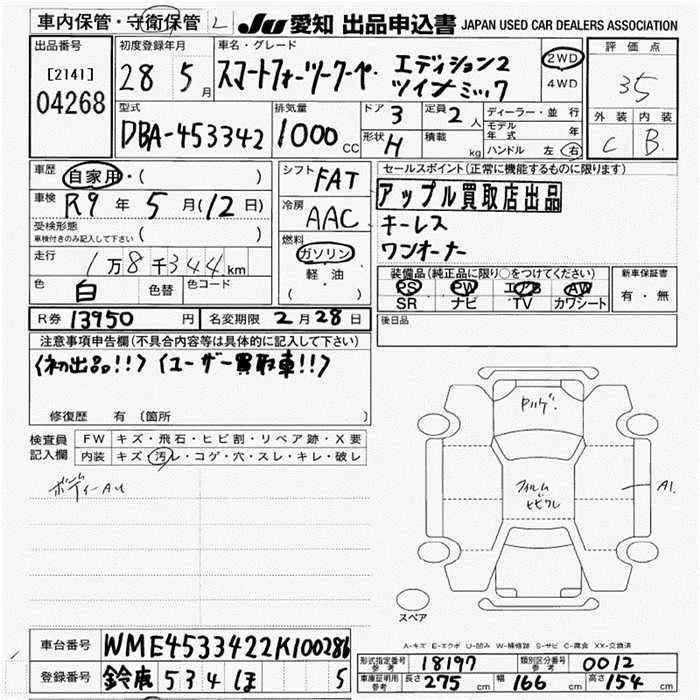 車内保管・守衛保管 L JU 愛知 出品申込書 JAPAN USED CAR DEALERS ASSOCIATION
出品番号 初度登録年月 車名・グレード 評価点
[2141] 04268 28 5月 スマートフォーツークーペ エディション2 ツインミック 2WD 4WD 35
型式 排気量 ドア 3 定員 2人 ディーラー・並行 外装 内装
DBA-453342 1000cc 形状 H 積載 kg モデル年式 年 C B
ハンドル 左 右
車歴 自家用・( ) シフト FAT セールスポイント(正常に機能するものに限ります)
車検 R9年 5月(12日) 冷房 AAC アップル買取店出品
受検形態 車検付きのみ記入して下さい ( ) キーレス
走行 1万8千344km 燃料 ガソリン ワンオーナー
色 白 色替 色コード 軽・油 ( )
装備品(純正品に限り○をつけてください) 新車保証書
PS PW エアB AW 有・無
SR ナビ TV カワシート
R券 13950円 名変期限 2月28日 後日品
注意事項申告欄(不具合内容等は具体的に記入して下さい)
〈初出品!!〉〈ユーザー買取車!!〉
修復歴 有 〔箇所 〕
検査員記入欄 FW キズ・飛石・ヒビ割・リペア跡・X要
内装 キズ・汚レ・コゲ・穴・スレ・キレ・破レ
ボディーAU
フィルム
ヒビワレ
A1.
スペア
A-キズ E-エクボ U-凹み W-補修跡 S-サビ C-腐食 XX-交換済
車台番号 WME4533422K100286
形式指定番号 参考 18197 類別区分番号 参考 0012
登録番号 鈴鹿 534 ほ 5
車庫証明用 参考 長さ 275cm 幅 166cm 高さ 154cm